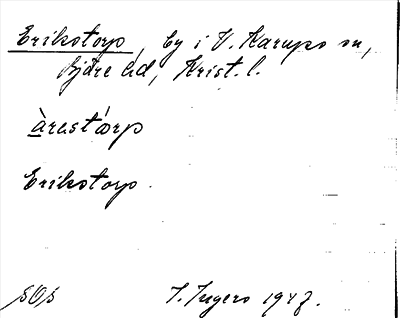 Erikstorp, by i V. Karups sn,
Bjäre hd, Krist. l.
àrastárp
Erikstorp.
SOS
J. Ingers 1947.